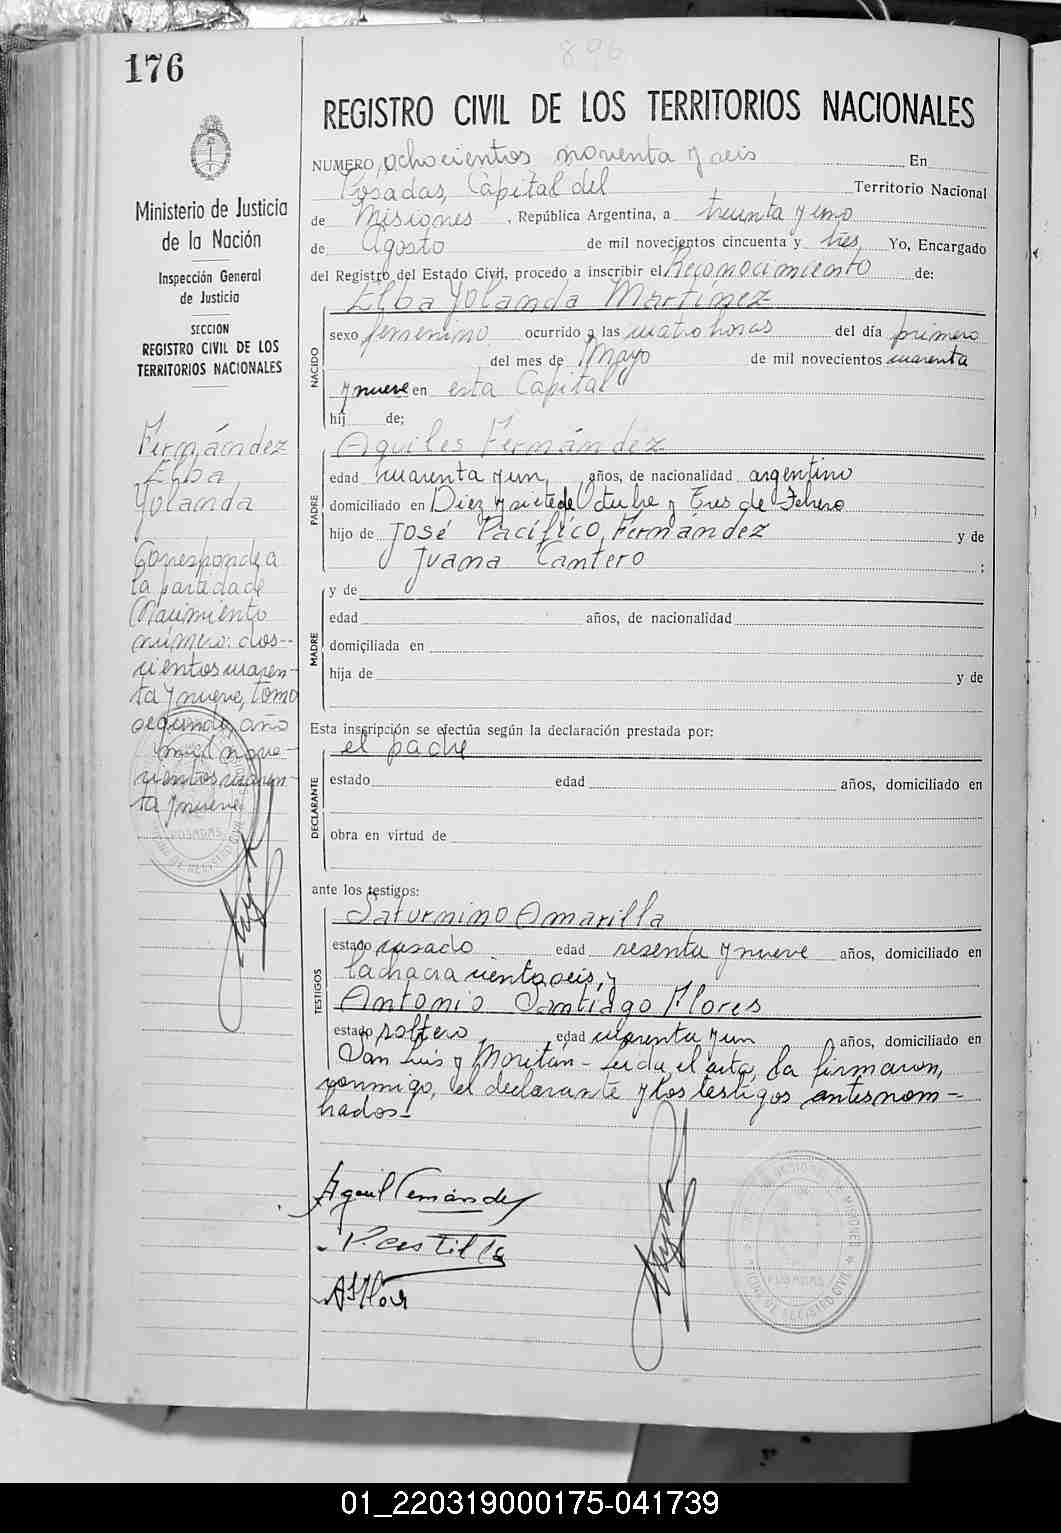 896
176
REGISTRO CIVIL DE LOS TERRITORIOS NACIONALES
Ministerio de Justicia
de la Nación
Inspección General
de Justicia
SECCION
REGISTRO CIVIL DE LOS
TERRITORIOS NACIONALES
Fernández
Elba
Yolanda
Corresponde a
la partida de
Nacimiento
número: dos--
cientos cuaren-
ta y nueve, tomo
segundo, año
mil nove-
cientos cuaren-
ta y nueve
NUMERO ochocientos noventa y seis En
Posadas, Capital del Territorio Nacional
de Misiones , República Argentina, a treinta y uno
de Agosto de mil novecientos cincuenta y tres Yo, Encargado
del Registro del Estado Civil, procedo a inscribir el Reconocimiento de:
Elba Yolanda Martínez
NACIDO
sexo femenino ocurrido a las cuatro horas del día primero
del mes de Mayo de mil novecientos cuarenta
y nueve en esta Capital
hij de;
Aquiles Fernández
PADRE
edad cuarenta y un años, de nacionalidad argentino
domiciliado en Diez y siete de Octubre y Tres de Febrero
hijo de José Pacífico Fernandez y de
Juana Cantero ;
MADRE
y de
edad años, de nacionalidad
domiciliada en
hija de y de
Esta inscripción se efectúa según la declaración prestada por:
el padre
DECLARANTE
estado edad años, domiciliado en
obra en virtud de
ante los testigos:
Saturnino Amarilla
TESTIGOS
estado casado edad sesenta y nueve años, domiciliado en
la chacra ciento seis, y
Antonio Santiago Flores
estado soltero edad cuarenta y un años, domiciliado en
San Luis y Moritán - leida el acta, la firmaron,
conmigo, el declarante y los testigos antes nom-
brados.-
POSADAS
01_220319000175-041739